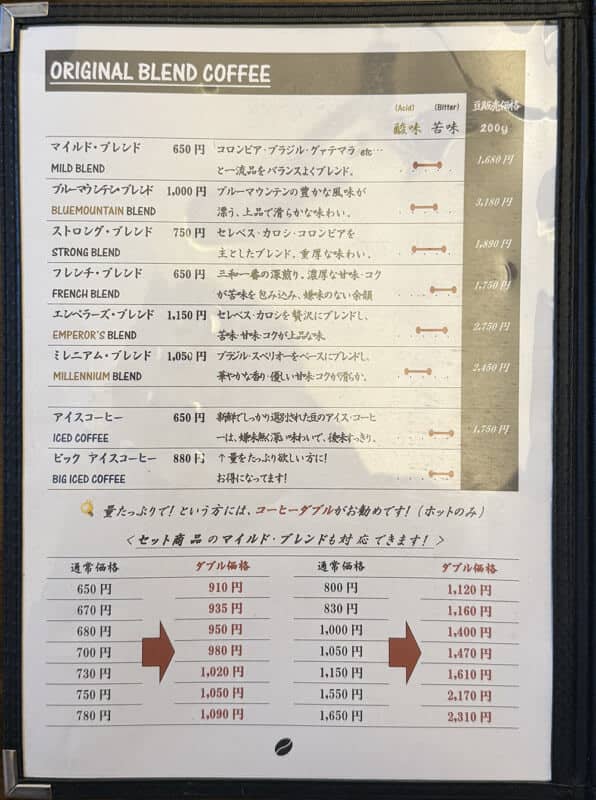 ORIGINAL BLEND COFFEE
(Acid) (Bitter) 豆販売価格
酸味 苦味 200g
マイルド・ブレンド 650円 コロンビア・ブラジル・グァテマラ etc…
MILD BLEND と一流品をバランスよくブレンド。 1,680円
ブルーマウンテン・ブレンド 1,000円 ブルーマウンテンの豊かな風味が
BLUEMOUNTAIN BLEND 漂う、上品で滑らかな味わい。 3,180円
ストロング・ブレンド 750円 セレベス・カロシ・コロンビアを
STRONG BLEND 主としたブレンド。重厚な味わい。 1,890円
フレンチ・ブレンド 650円 三和一番の深煎り。濃厚な甘味・コク
FRENCH BLEND が苦味を包み込み、嫌味のない余韻 1,750円
エンペラーズ・ブレンド 1,150円 セレベス・カロシを贅沢にブレンドし、
EMPEROR'S BLEND 苦味・甘味・コクが上品な味。 2,750円
ミレニアム・ブレンド 1,050円 ブラジル・スペリオーをベースにブレンドし、
MILLENNIUM BLEND 華やかな香り・優しい甘味・コクが滑らか。 2,450円
アイスコーヒー 650円 新鮮でしっかり選別された豆のアイス・コーヒ
ICED COFFEE ーは、嫌味無く深い味わいで、後味すっきり。 1,750円
ビック アイスコーヒー 880円 ↑量をたっぷり欲しい方に!
BIG ICED COFFEE お得になってます!
量たっぷりで!という方には、コーヒーダブルがお勧めです!(ホットのみ)
<セット商品のマイルド・ブレンドも対応できます!>
通常価格 ダブル価格 通常価格 ダブル価格
650円 910円 800円 1,120円
670円 935円 830円 1,160円
680円 950円 1,000円 1,400円
700円 980円 1,050円 1,470円
730円 1,020円 1,150円 1,610円
750円 1,050円 1,550円 2,170円
780円 1,090円 1,650円 2,310円